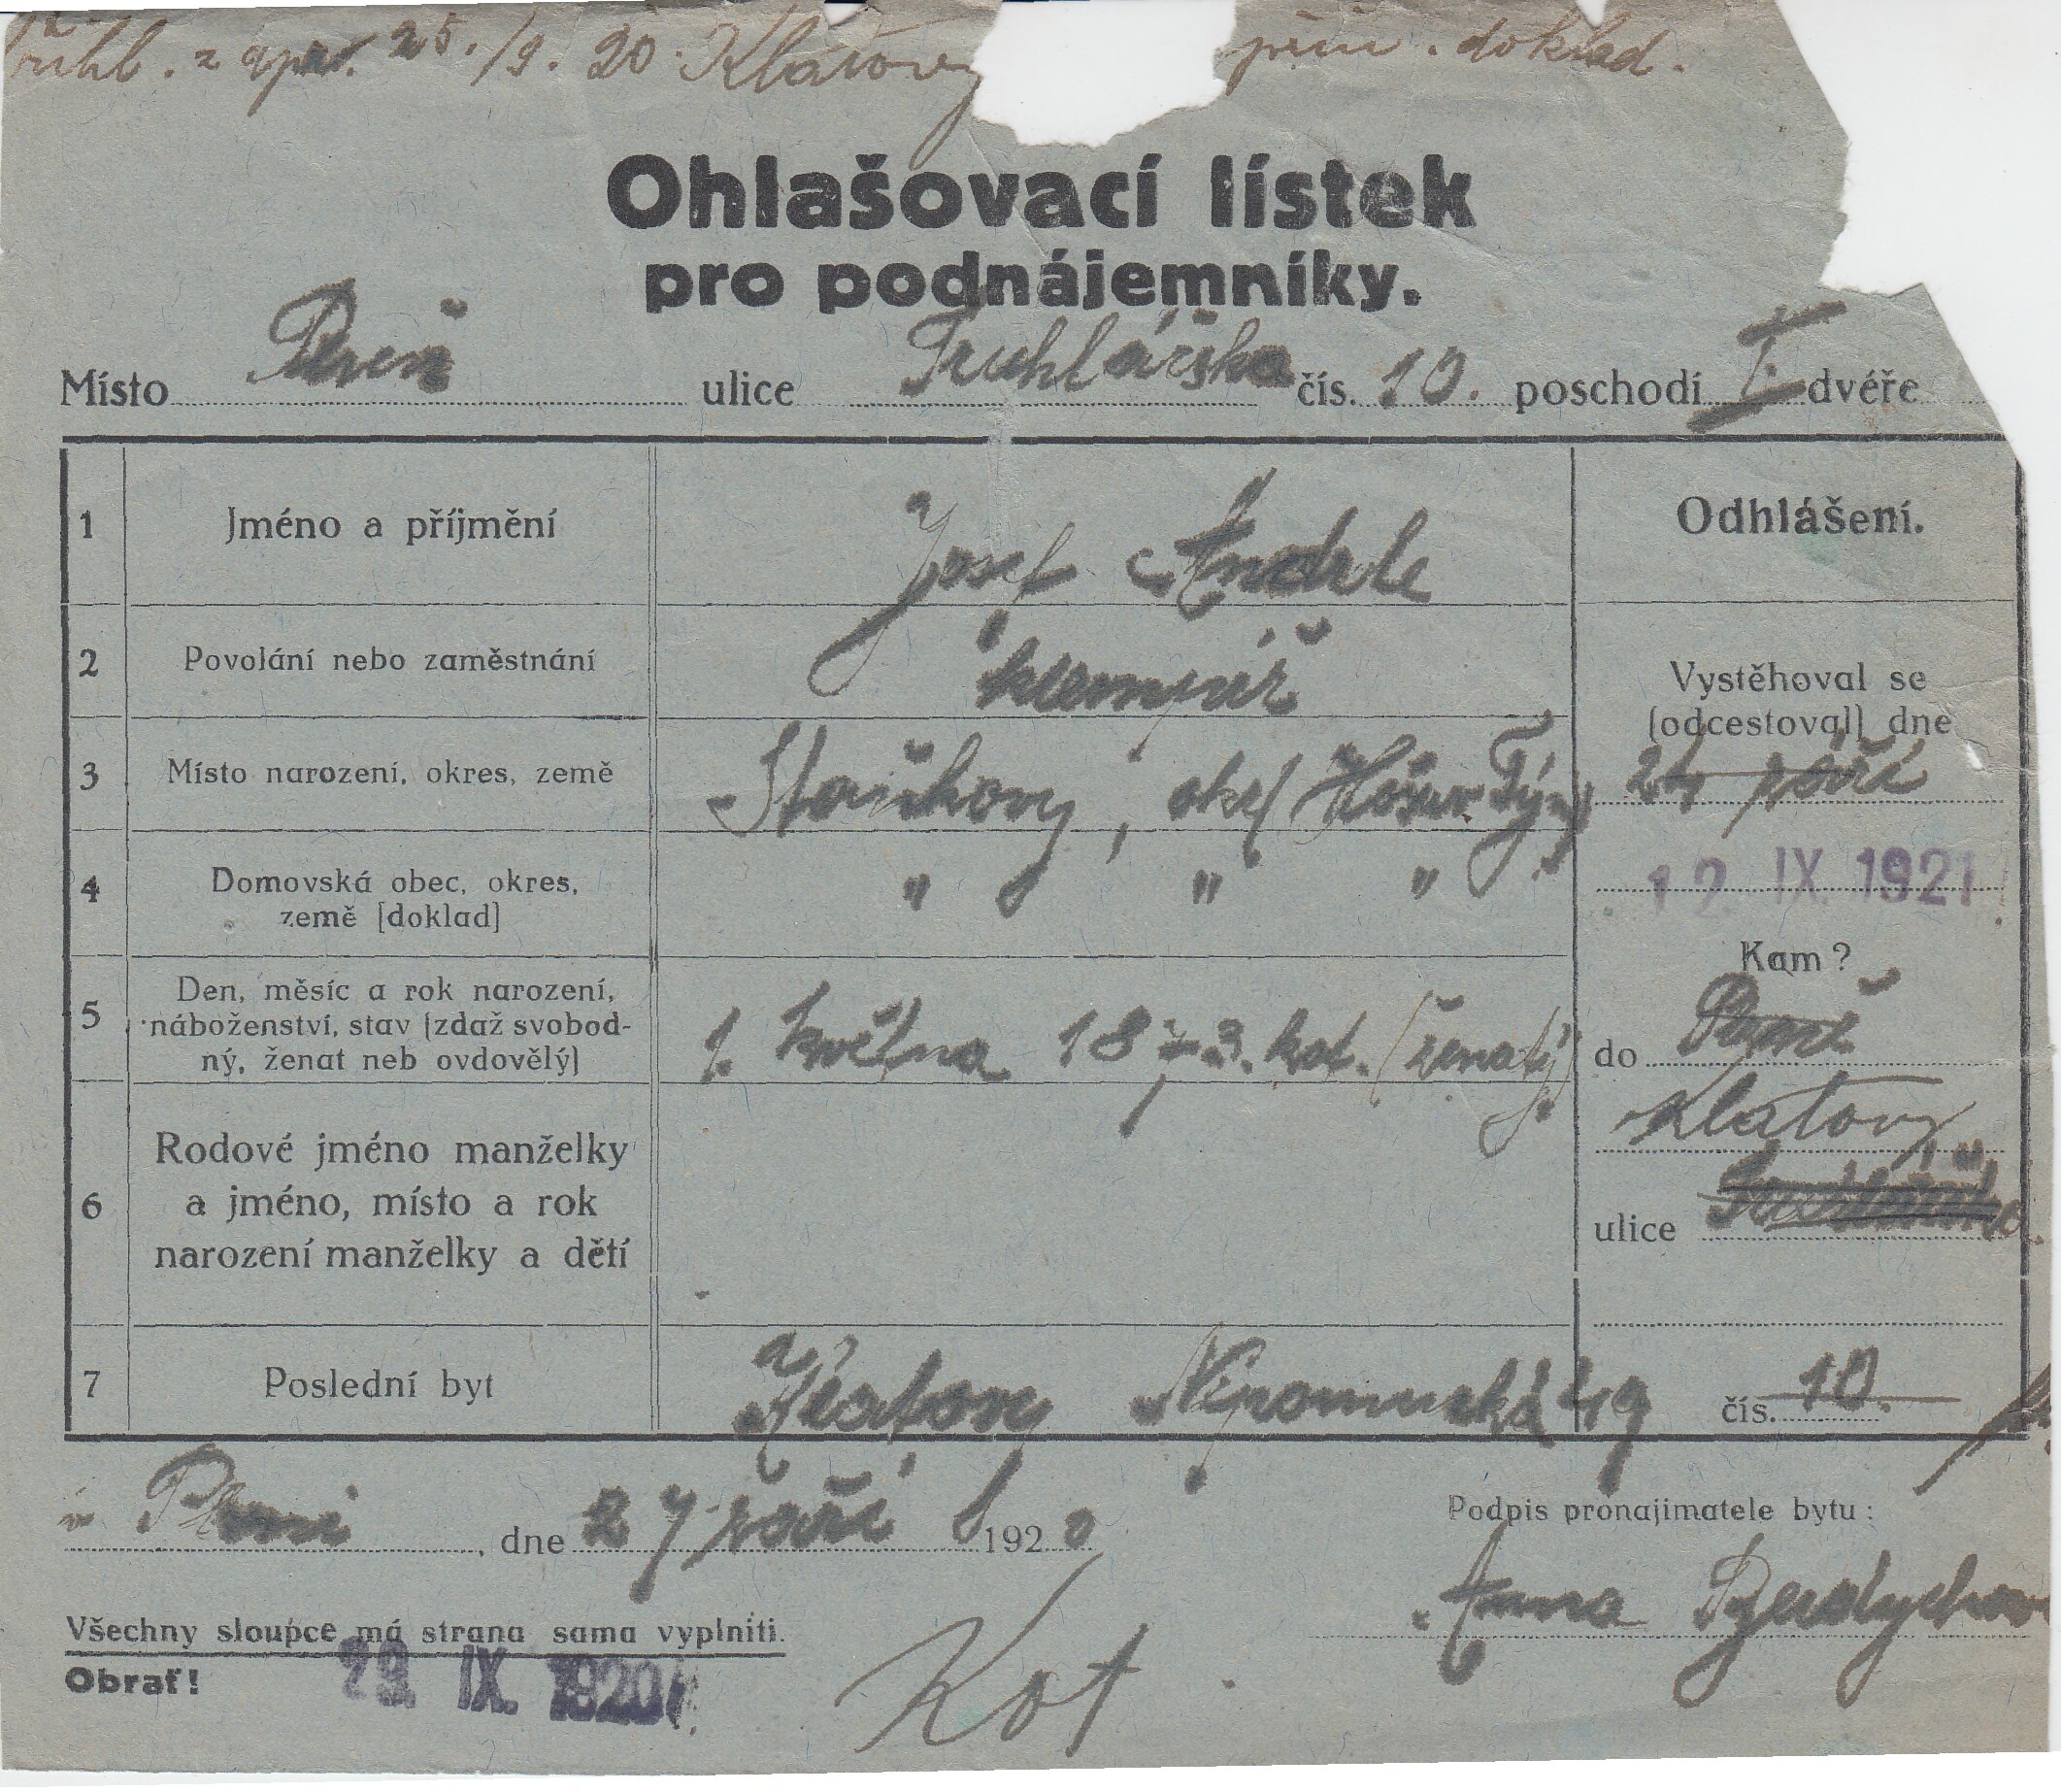 25./9. 20. Klatovy doklad.
Ohlašovací lístek
pro podnájemníky.
Místo Plzeň ulice Truhlářská čís. 10. poschodí I. dvéře
1 Jméno a příjmění Josef Andrle
Odhlášení.
2 Povolání nebo zaměstnání klempíř
Vystěhoval se
(odcestoval) dne
3 Místo narození, okres, země Staňkovy, okr. Horšův Týn
24 září
4 Domovská obec, okres,
země [doklad] " " "
12. IX. 1921
Kam?
5 Den, měsíc a rok narození,
náboženství, stav (zdaž svobod-
ný, ženat neb ovdovělý) 1. května 1873. kat. (ženatý)
do Plzně
Klatovy
6 Rodové jméno manželky
a jméno, místo a rok
narození manželky a dětí
ulice Truhlářská
7 Poslední byt Klatovy Nepomucká 49
čís. 10.
v Plzni, dne 27 září 1920
Podpis pronajimatele bytu:
Anna
Všechny sloupce má strana sama vyplniti.
Obrať! 29. IX. 1920
Kot